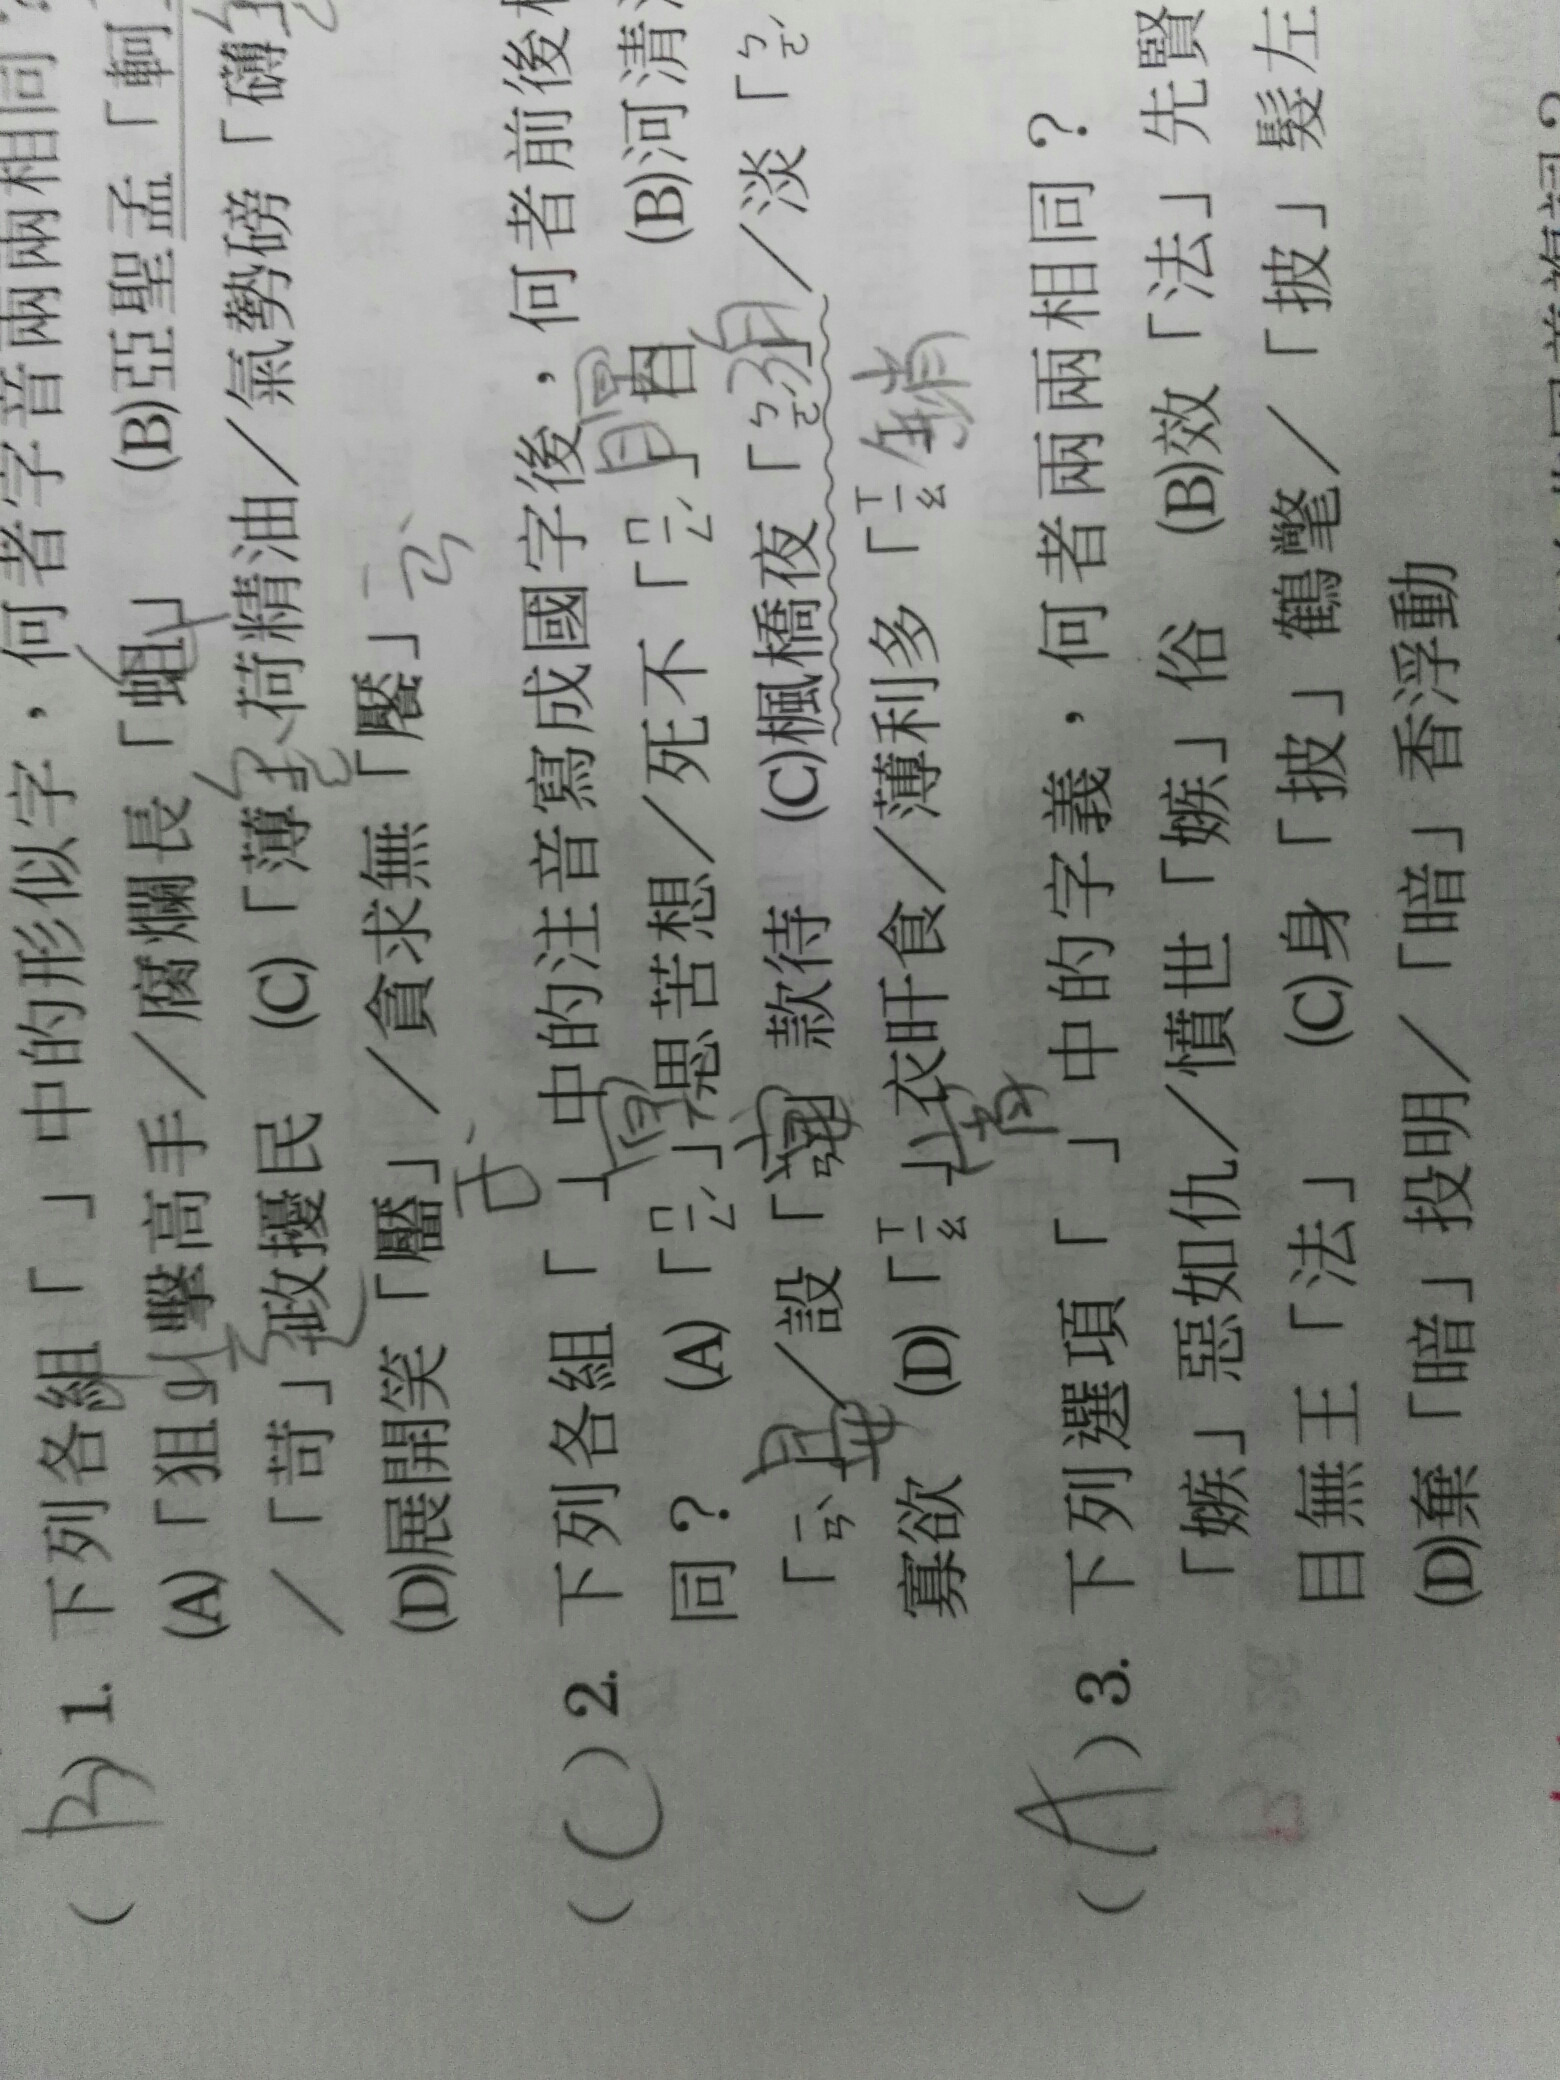 (B)1. 下列各組「 」中的形似字，何者字音兩兩相同？
(A)「狙」擊高手／腐爛長「蛆」 (B)亞聖孟「軻」
／「苛」政擾民 (C)「薄」荷精油／氣勢磅「礴」
(D)展開笑「靨」／貪求無「饜」
(C)2. 下列各組「 」中的注音寫成國字後，何者前後
同？ (A)「ㄇㄧㄥˊ」思苦想／死不「ㄇㄧㄥˊ」目 (B)河清
「ㄧㄢˋ」／設「ㄧㄢˋ」款待 (C)楓橋夜「ㄅㄛˊ」／淡「ㄅㄛˊ
寡欲 (D)「ㄒㄧㄠ」衣旰食／薄利多「ㄒㄧㄠ
銷
(A)3. 下列選項「 」中的字義，何者兩兩相同？
「嫉」惡如仇／憤世「嫉」俗 (B)效「法」先賢
目無王「法」 (C)身「披」鶴氅／「披」髮左
(D)棄「暗」投明／「暗」香浮動